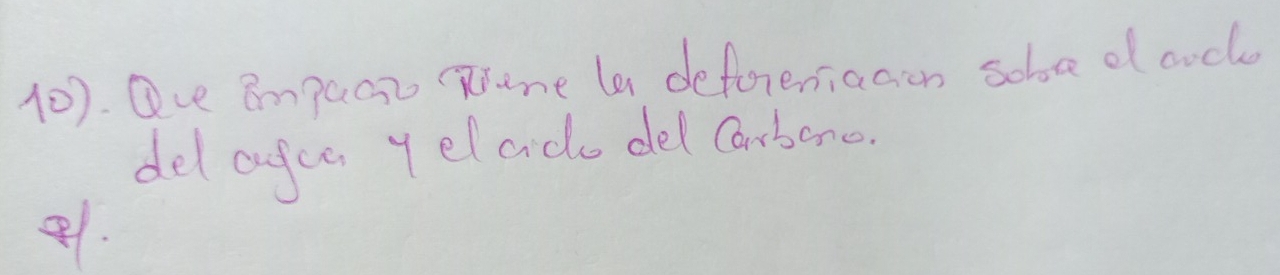 10). Que impacto tiene la deforestacion sobre el ciclo
del agua y el ciclo del Carbono.
R/.